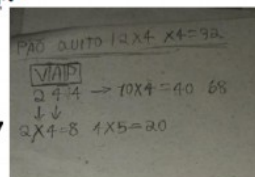 PÃO QUITO 12X4 X4=92
VAP
2 4 4 → 10X4=40 68
↓ ↓
2X4=8 4X5=20